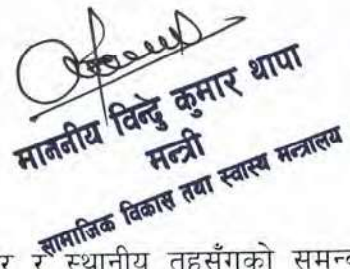 माननीय विन्दु कुमार थापा
मन्त्री
सामाजिक विकास तथा स्वास्थ्य मन्त्रालय
र र स्थानीय तहसँगको समन्व